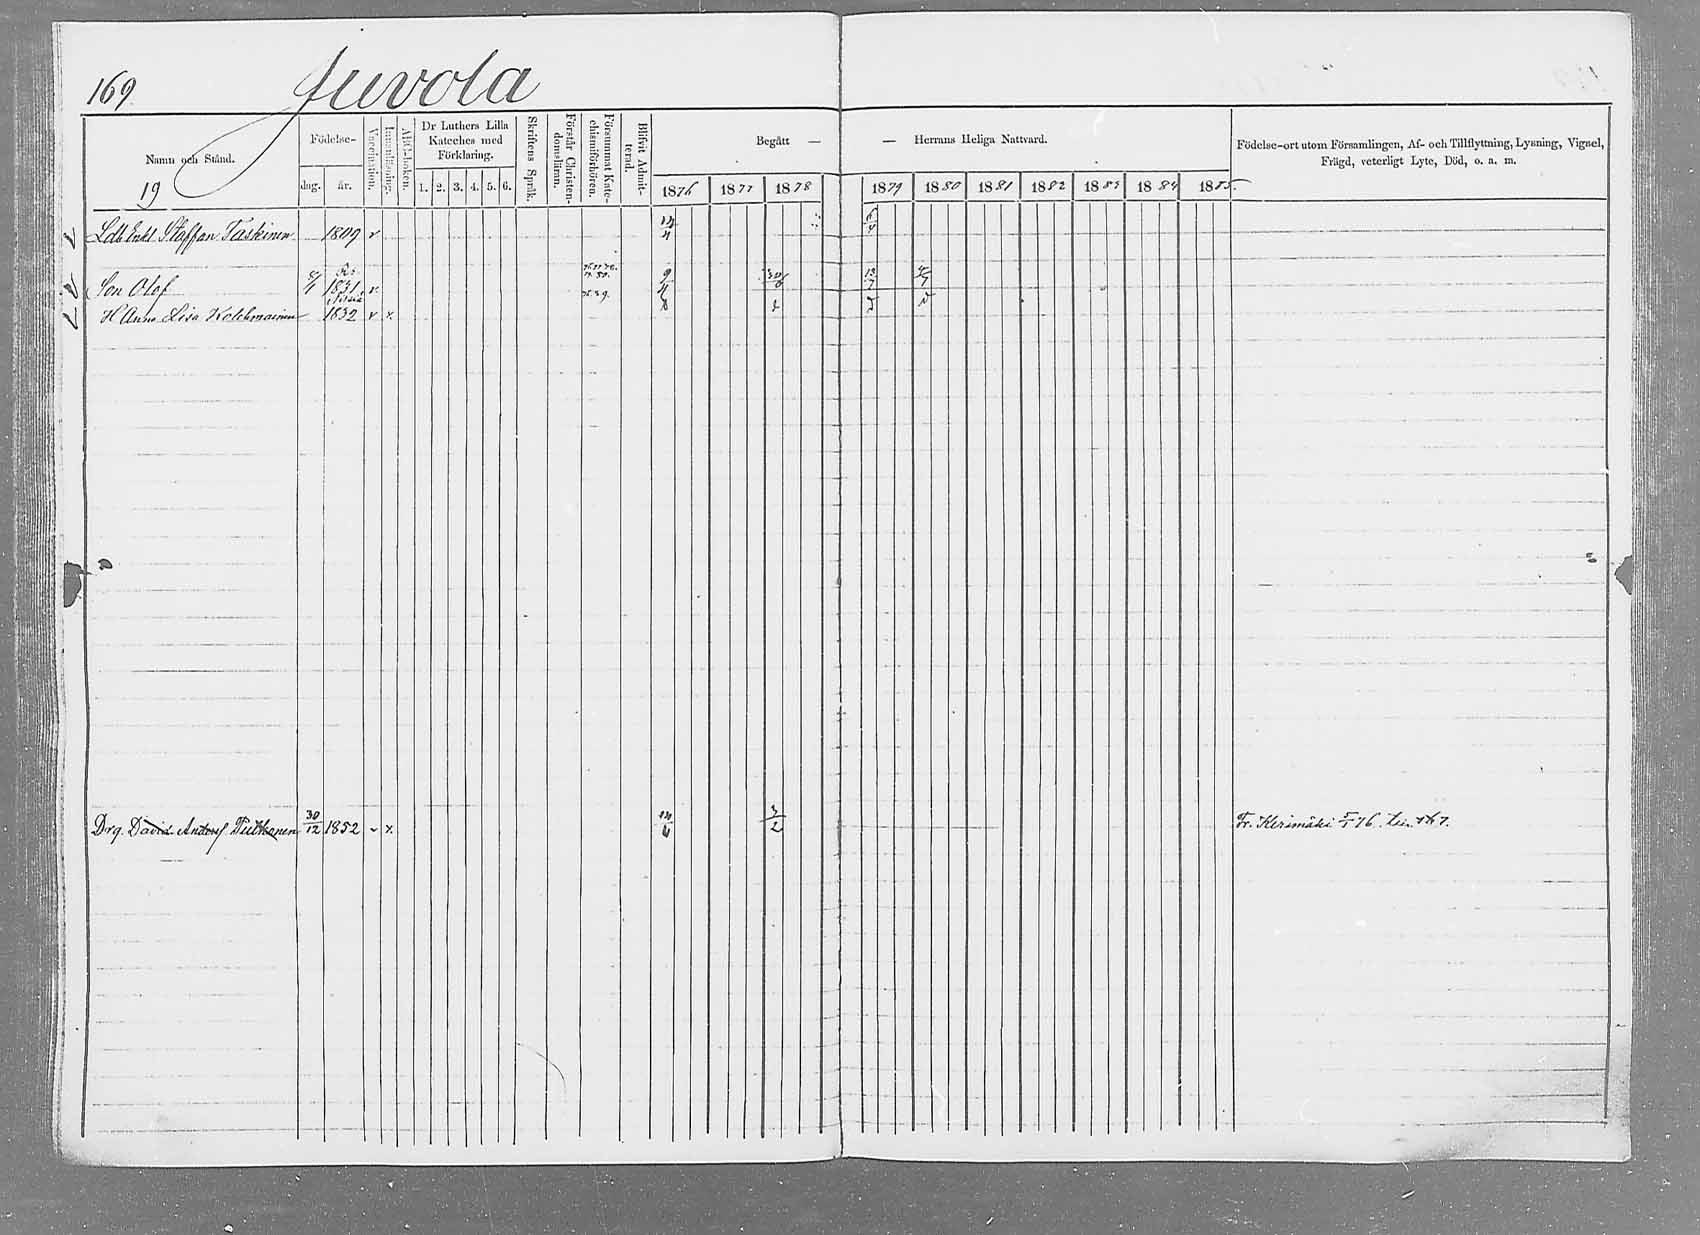 169. Juvola
Namn och Stånd.
19
Födelse-
dag. år.
Vaccination.
Innanläsning.
ABC-boken.
Dr Luthers Lilla
Kateches med
Förklaring.
1. 2. 3. 4. 5. 6.
Skriftens Språk.
Förstår Christen-
domsläran.
Försummat Kate-
chismiförhören.
Blifvit Admit-
terad.
Begått —
1876 1877 1878
— Herrans Heliga Nattvard.
1879 1880 1881 1882 1883 1884 1885
Födelse-ort utom Församlingen, Af- och Tillflyttning, Lysning, Vigsel,
Frägd, veterligt Lyte, Död, o. a. m.
Staffan Taskinen 1809 v
Son Olof 1831 v
H Anna Lisa Kolehmainen 1832 v x
Drg. David Anders 30/12 1852 v x 3/2 Fr. Kerimäki